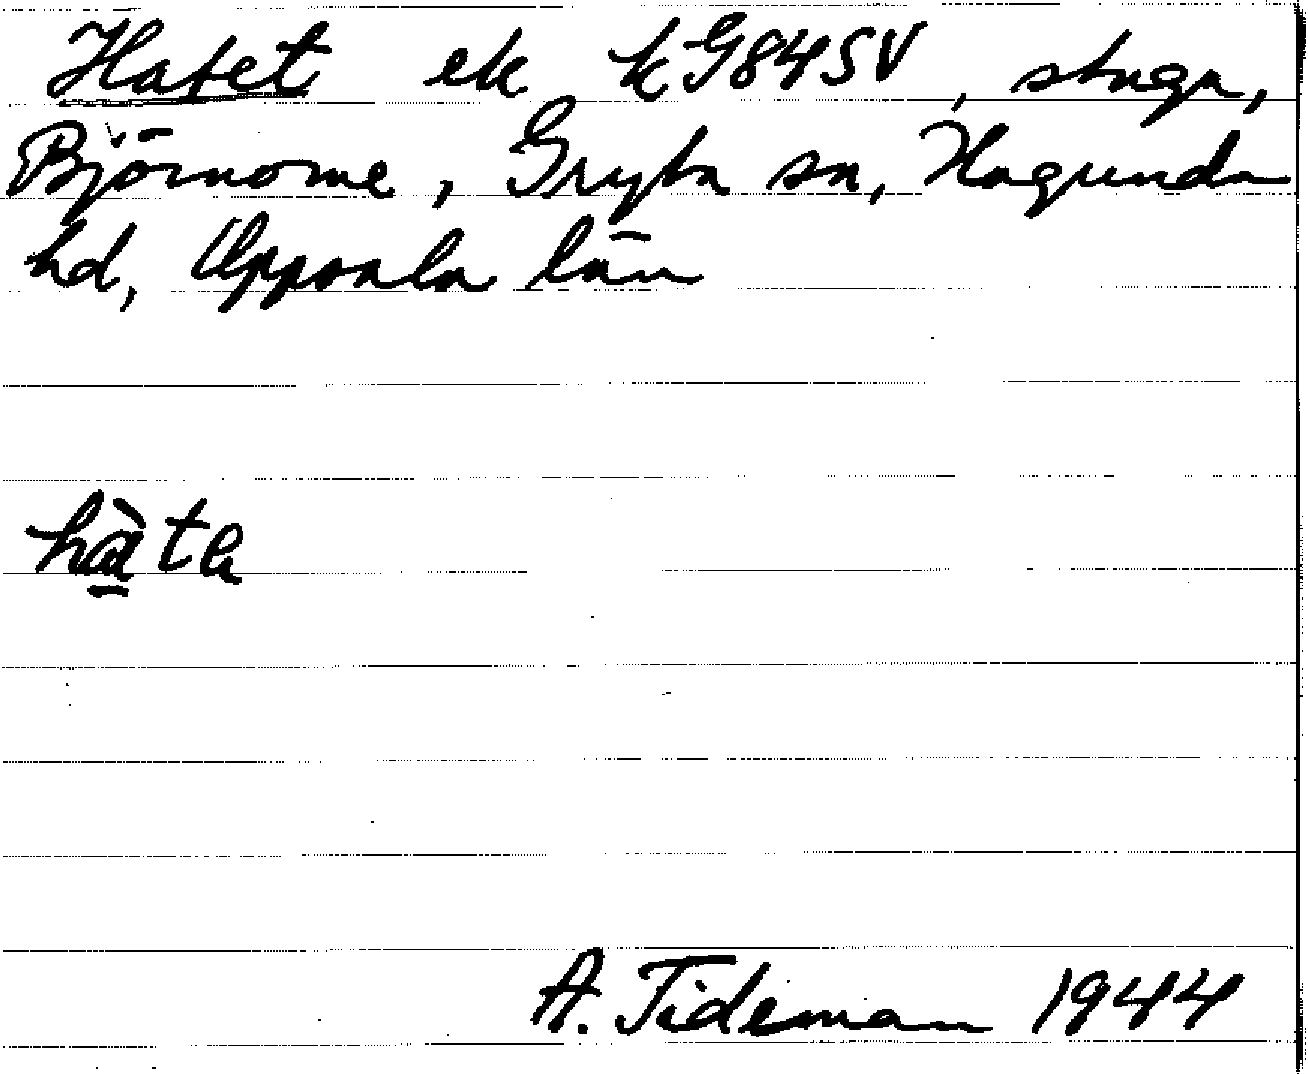 Hatet ek kG84SV, stuga,
Björnome, Gryta sn, Hagunda
hd, Uppsala län
hà̱ta
A. Tideman 1944